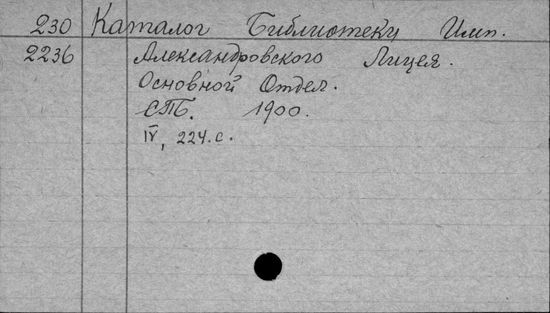 230 Каталог Библиотеки Имп.
2236 Александровского Лицея.
Основной Отдел.
СПБ. 1900.
IV, 224.с.